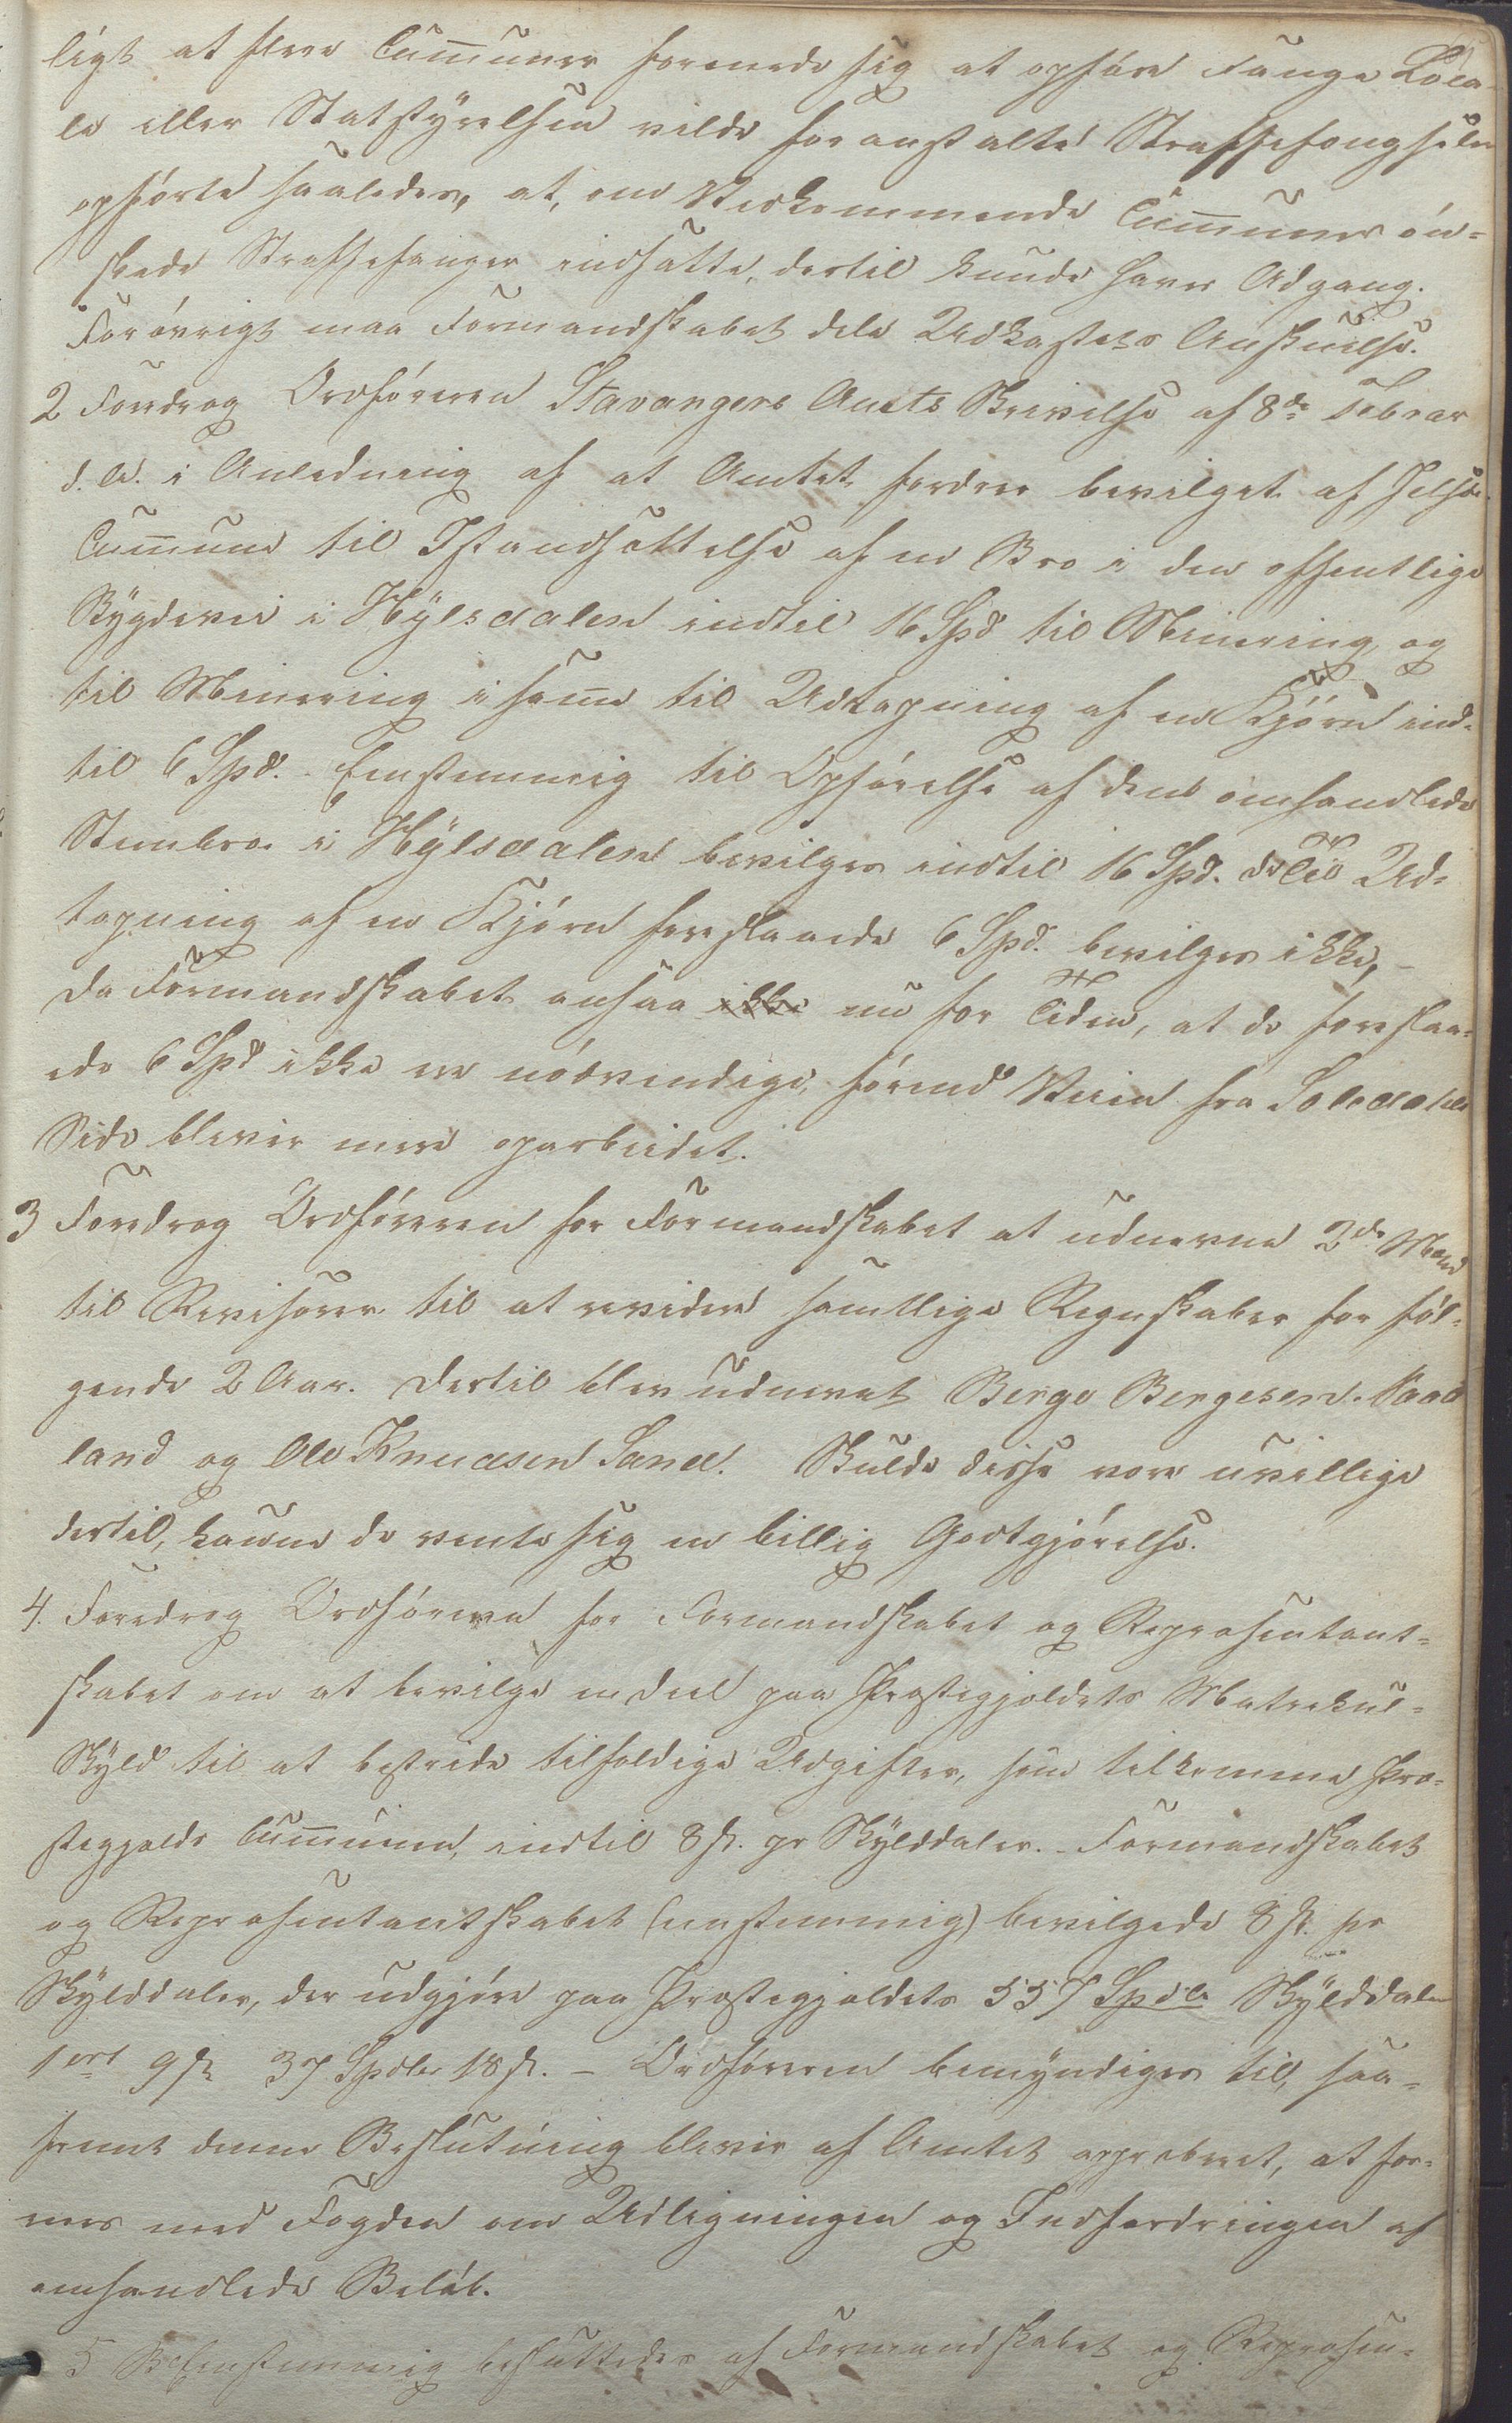 ligt at flere Communer forenede sig at opføre Fange Loca-
le eller Statstyrelsen vilde foranstalte Straffefængsler
opførte saaledes, at, om Vedkommende Communer øn-
skede Straffefanger indsatte, dertil kunde haves Adgang.
Forøvrigt maa Formandskabet dele Udkastets Anskuelse.
2 Foredrog Ordføreren Stavangers Amts Skrivelse af 8de Febrar
d. A. i Anledning af at Amtet fordrer bevilget af Jelsø
Commune til Istandsættelse af en Bro i den offentlige
Bygdevei i Hylsdalen indtil 16 Spd til Minering og
til Minering i samme til Udtapning af en Kjørn ind-
til 6 Spd. Eenstemmig til Opførelse af den omhandlede
Steenbro i Hylsdalen bevilges indtil 16 Spd. de til Ud-
tapning af en Kjørn foreslaaede 6 Spd. bevilges ikke,
da Formandskabet ansaa ikke nu for Tiden, at de foreslaa-
ede 6 Spd ikke er nødvendige, førend Veien fra Soledahls
Side bliver mere oparbeidet.
3 Foredrog Ordføreren for Formandskabet at udnævne 2de Mænd
til Revisorer til at revidere samtlige Regnskaber for føl-
gende 2 Aar. Dertil blev udnævnt Berge Bergesen
land og Ole Knudsen Sand. Skulde disse være uvillige
dertil, kunne de vente sig en billig Godtgjørelse.
4. Foredrog Ordføreren for Formandskabet og Repræsentant-
skabet om at bevilge en Deel paa Præstegjeldets Matrekul-
Skyld til at bestride tilfældige Udgifter, som tilkomme Præ-
stegjelds Communen, indtil 8 sk. pr Skylddaler. Formandskabet
og Repræsentantskabet (eenstemmig) bevilgede 8 sk. pr
Skylddaler, der udgjøre paa Præstegjeldets 557 Spdlr Skylddaler
1 ort 9 sk 37 Spdlr 18 sk. – Ordføreren bemyndiges til, saa-
fremt denne Beslutning bliver af Amtet approberet, at for-
enes med Fogden om Udligningen og Indfordringen af
omhandlede Beløb.
5 Eenstemmig besluttedes af Formandskabet og Repræsen-